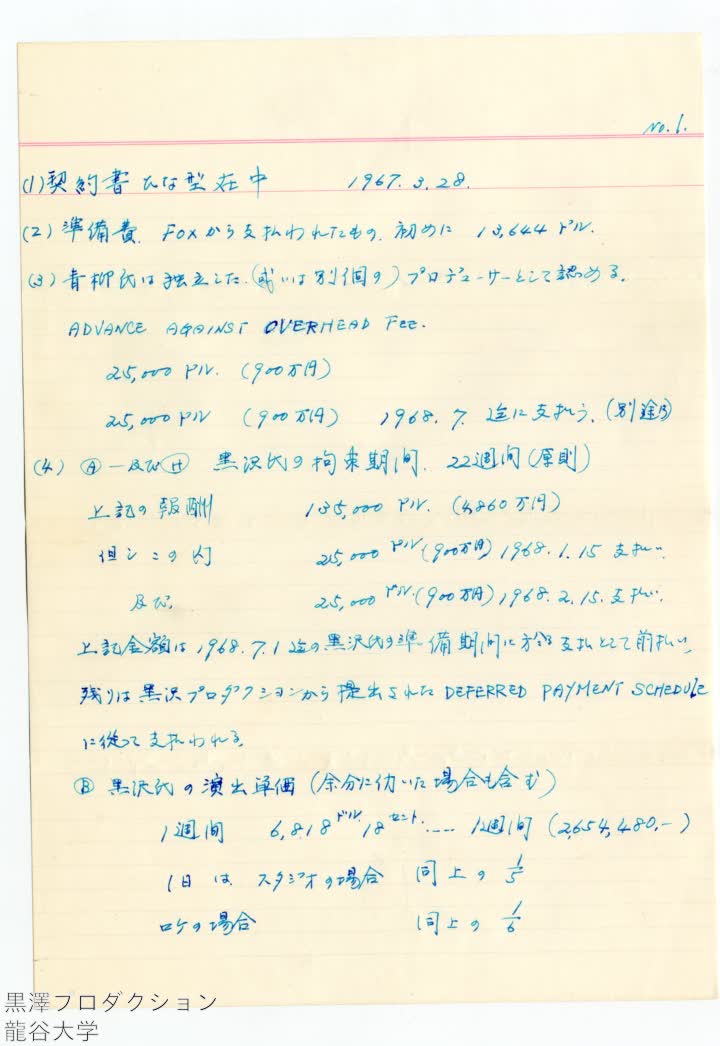 No.1.
(1) 契約書ひな型在中 1967.3.28.
(2) 準備費、Foxから支払われたもの、初めに 13,644ドル.
(3) 青柳氏は独立した、(或いは別個の)プロデューサーとして認める。
ADVANCE AGAINST OVERHEAD Fee.
25,000ドル. (900万円)
25,000ドル (900万円) 1968.7. 迄に支払う、(別途)
(4) Ⓐ 一及び 黒沢氏の拘束期間、22週間(原則)
上記の報酬 135,000ドル. (4,860万円)
但しこの内 25,000ドル(900万円) 1968.1.15 支払い.
及び 25,000ドル(900万円) 1968.2.15. 支払い.
上記金額は1968.7.1迄の黒沢氏の準備期間に於る支払として前払い、
残りは黒沢プロダクションから提出された DEFERRED PAYMENT SCHEDULE
に従って支払われる。
Ⓑ 黒沢氏の演出単価(余分に仂いた場合も含む)
1週間 6,818ドル18セント..... 1週間(2,654,480.-)
1日は、スタジオの場合 同上の 1/5
ロケの場合 同上の 1/6
黒澤プロダクション
龍谷大学